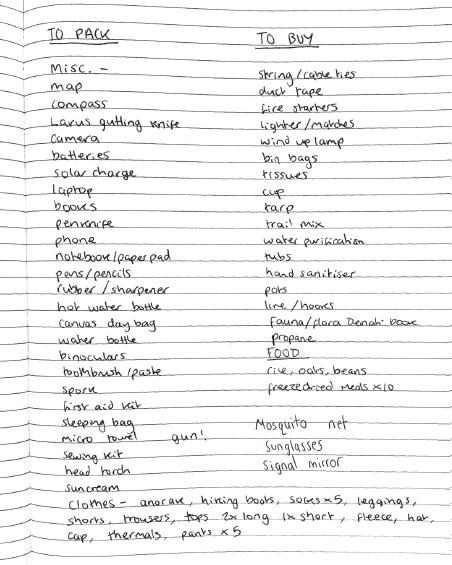 TO PACK
Misc. -
map
compass
Larus gutting knife
camera
batteries
solar charge
laptop
books
penknife
phone
notebook/paper pad
pens/pencils
rubber/sharpener
hot water bottle
canvas day bag
water bottle
binoculars
toothbrush/paste
spork
first aid kit
sleeping bag
micro towel gun!
sewing kit
head torch
suncream
TO BUY
string/cable ties
duct tape
fire starters
lighter/matches
wind up lamp
bin bags
tissues
cup
tarp
trail mix
water purification
tubs
hand sanitiser
pots
line/hooks
Fauna/flora Denali book
propane
FOOD
rice, oats, beans
freezedried meals x10
Mosquito net
sunglasses
signal mirror
Clothes - anorak, hiking boots, socks x5, leggings,
shorts, trousers, tops 2x long 1x short, fleece, hat,
cap, thermals, pants x5